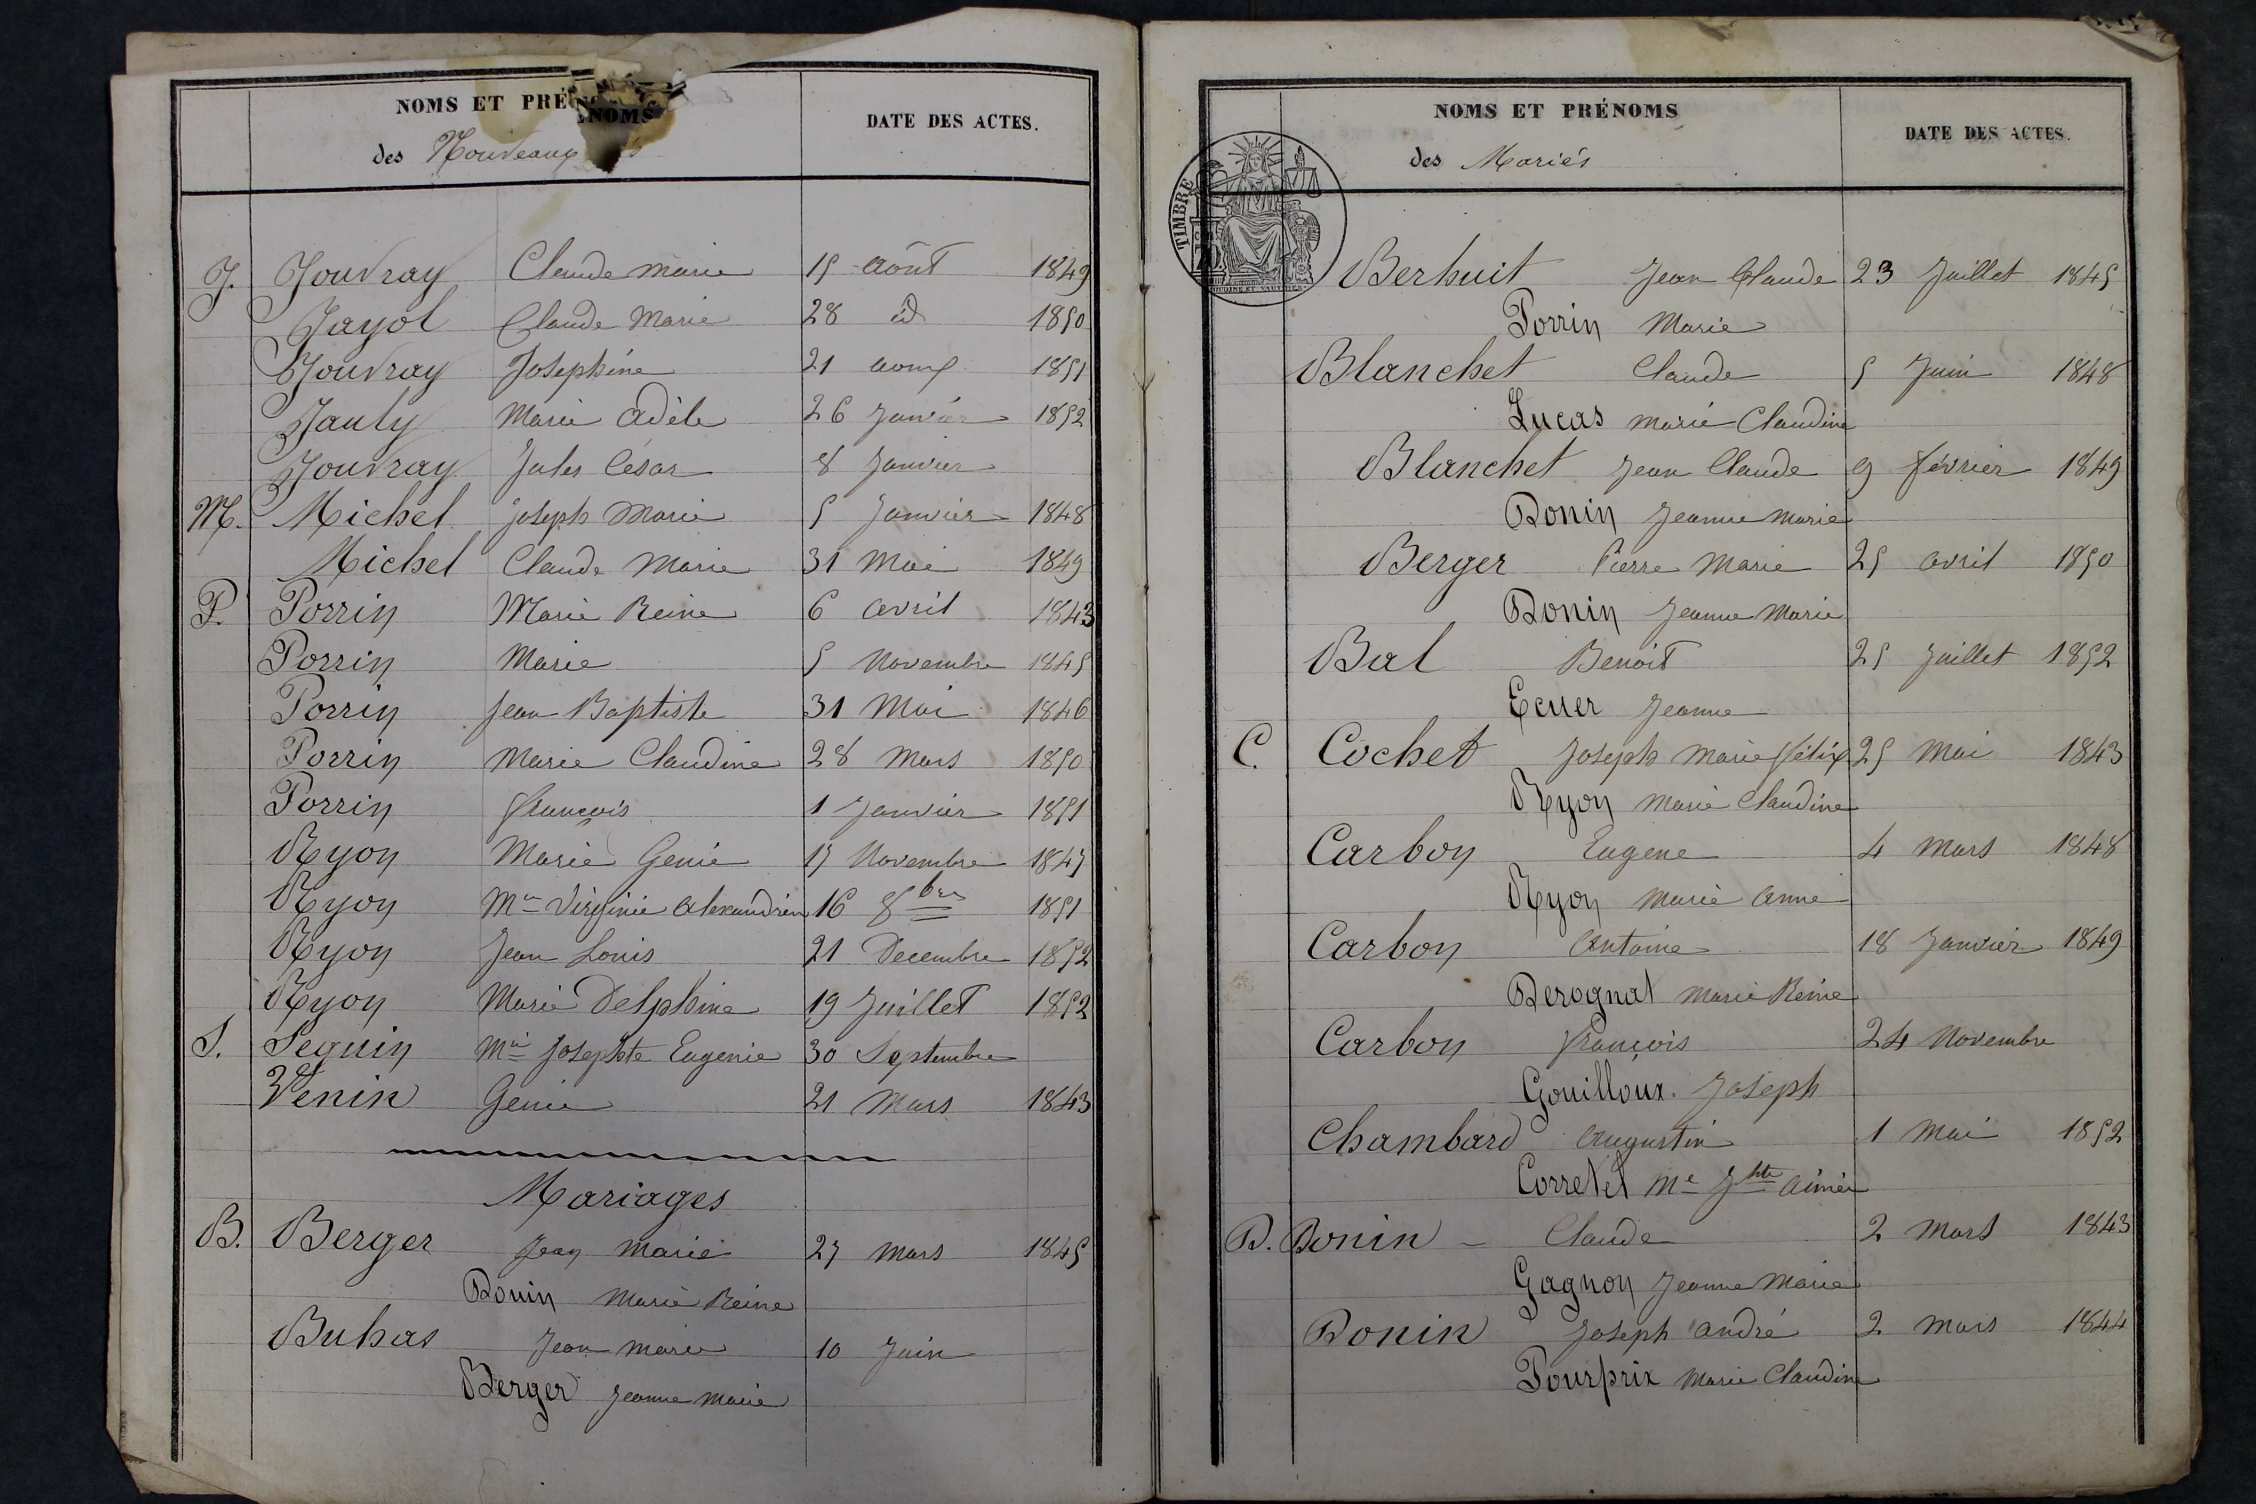 NOMS ET PRÉNOMS
DATE DES ACTES.
des Nouveaux
J. Jouvray Claude Marie 15 août 1849
Jayol Claude Marie 28 id 1850
Jouvray Josephine 21 1851
Jauly Marie Adèle 26 Janvier 1852
Jouvray Jules César 8 Janvier
M. Michel Joseph Marie 5 Janvier 1848
Michel Claude Marie 31 Mai 1849
P. Porrin Marie Reine 6 avril 1843
Porrin Marie 5 Novembre 1845
Porrin Jean Baptiste 31 Mai 1846
Porrin Marie Claudine 28 Mars 1850
Porrin François 1 Janvier 1851
Ryon Marie Genie 17 Novembre 1847
Ryon Virginie 16 8bre 1851
Ryon Jean Louis 21 Decembre 1852
Ryon Marie Delphine 19 Juillet 1852
S. Seguin Mie Josephte Eugenie 30 Septembre
Venin Genie 21 Mars 1843
Mariages
B. Berger Jean Marie 27 mars 1845
Donin Marie Reine
Buhas Jean Marie 10 Juin
Berger Jeanne Marie
NOMS ET PRÉNOMS
DATE DES ACTES.
des Mariés
TIMBRE
Berhuit Jean Claude 23 Juillet 1845
Porrin Marie
Blanchet Claude 5 Juin 1848
Lucas Marie Claudine
Blanchet Jean Claude 9 février 1849
Donin Jeanne Marie
Berger Pierre Marie 25 avril 1850
Donin Jeanne Marie
Bal Benoit 25 Juillet 1852
Ecuer Jeanne
C. Cochet Joseph Marie Félix 25 Mai 1843
Ryon Marie Claudine
Carbon Eugene 4 Mars 1848
Ryon Marie Anne
Carbon Antoine 18 Janvier 1849
Derognat Marie Reine
Carbon François 24 Novembre
Gouilloux Joseph
Chambard Augustin 1 Mai 1852
Corretel Me Jhte Aimée
D. Donin - Claude 2 Mars 1843
Gagnon Jeanne Marie
Donin Joseph André 2 Mars 1844
Pourprix Marie Claudine